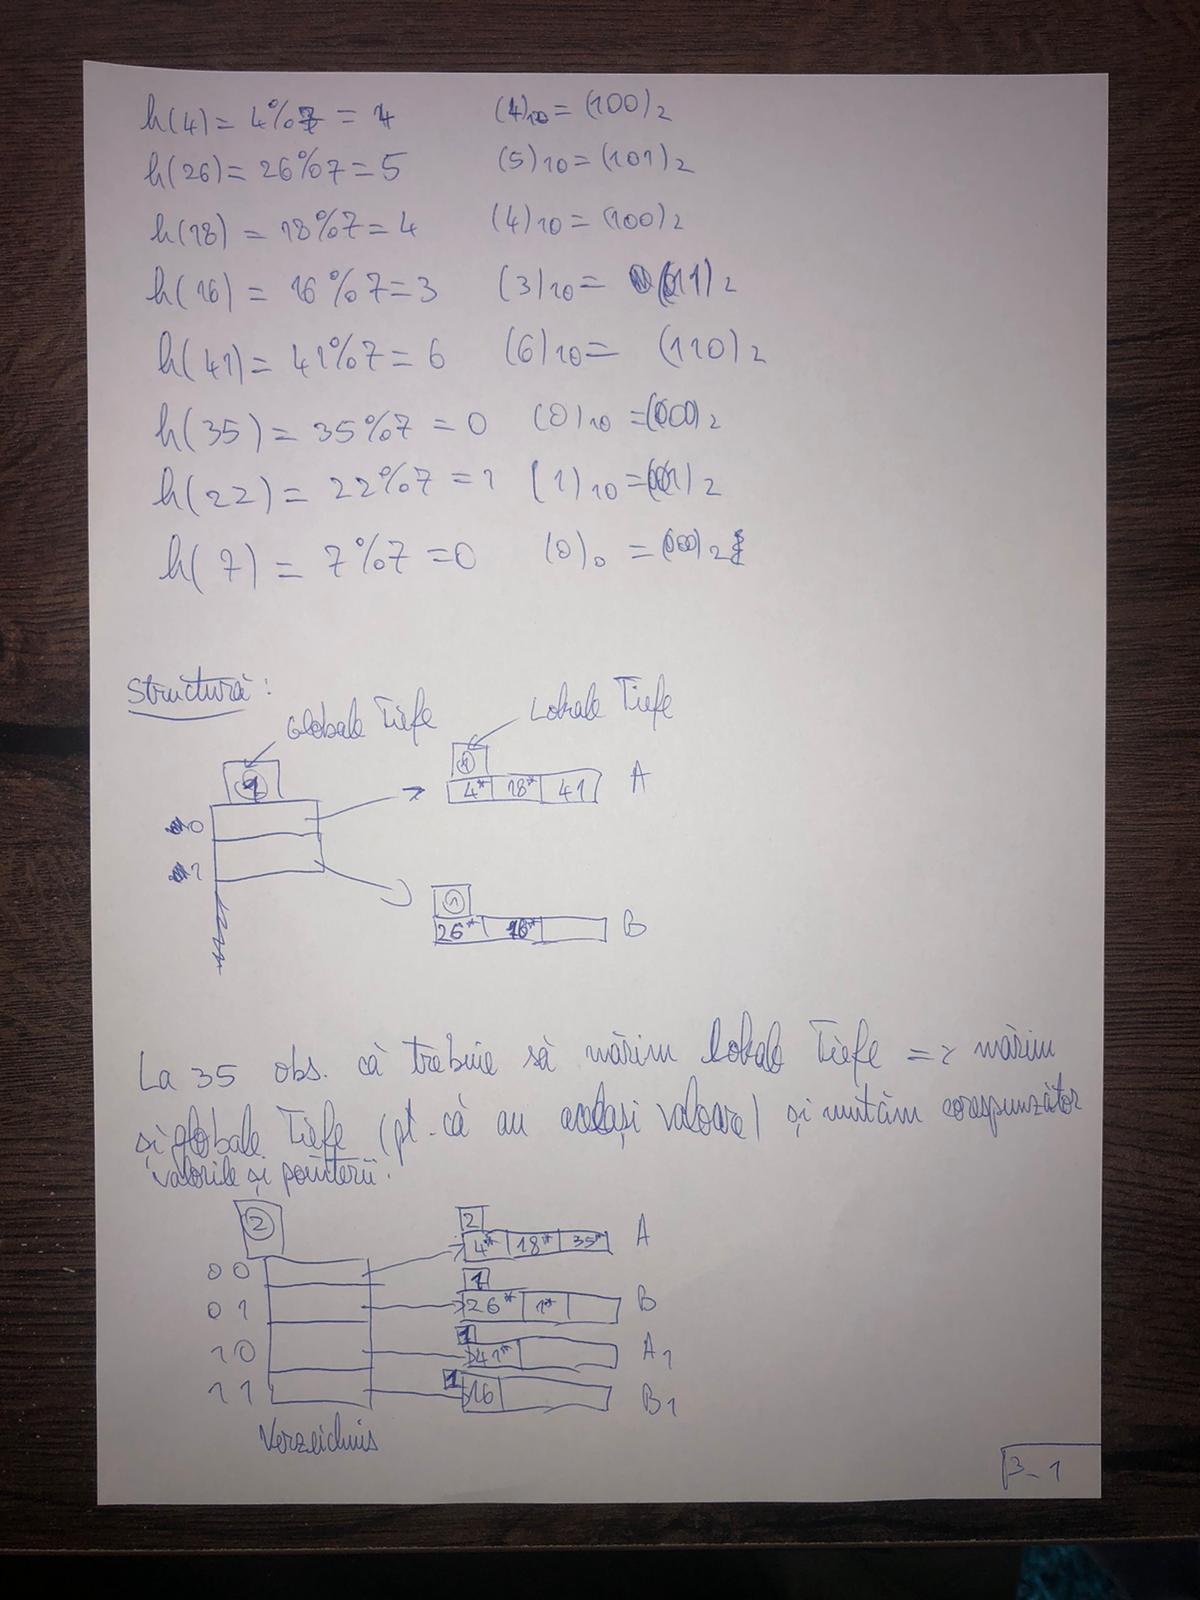 h(4) = 4%7 = 4 (4)10 = (100)2
h(26) = 26%7 = 5 (5)10 = (101)2
h(18) = 18%7 = 4 (4)10 = (100)2
h(16) = 16%7 = 3 (3)10 = (011)2
h(41) = 41%7 = 6 (6)10 = (110)2
h(35) = 35%7 = 0 (0)10 = (000)2
h(22) = 22%7 = 1 (1)10 = (001)2
h(7) = 7%7 = 0 (0)0 = (000)2
Structură:
Globale Tiefe
Lokale Tiefe
1
1
0
4* 18* 41 A
1
1
26* 16* B
La 35 obs. că trebuie să mărim lokale Tiefe => mărim
și globale Tiefe (pt. că au aceeași valoare) și mutăm corespunzător
valorile și pointerii.
2
2
00 4* 18* 35* A
1
01 26* 1* B
1
10 41* A1
1
11 16 B1
Verzeichnis
3-1